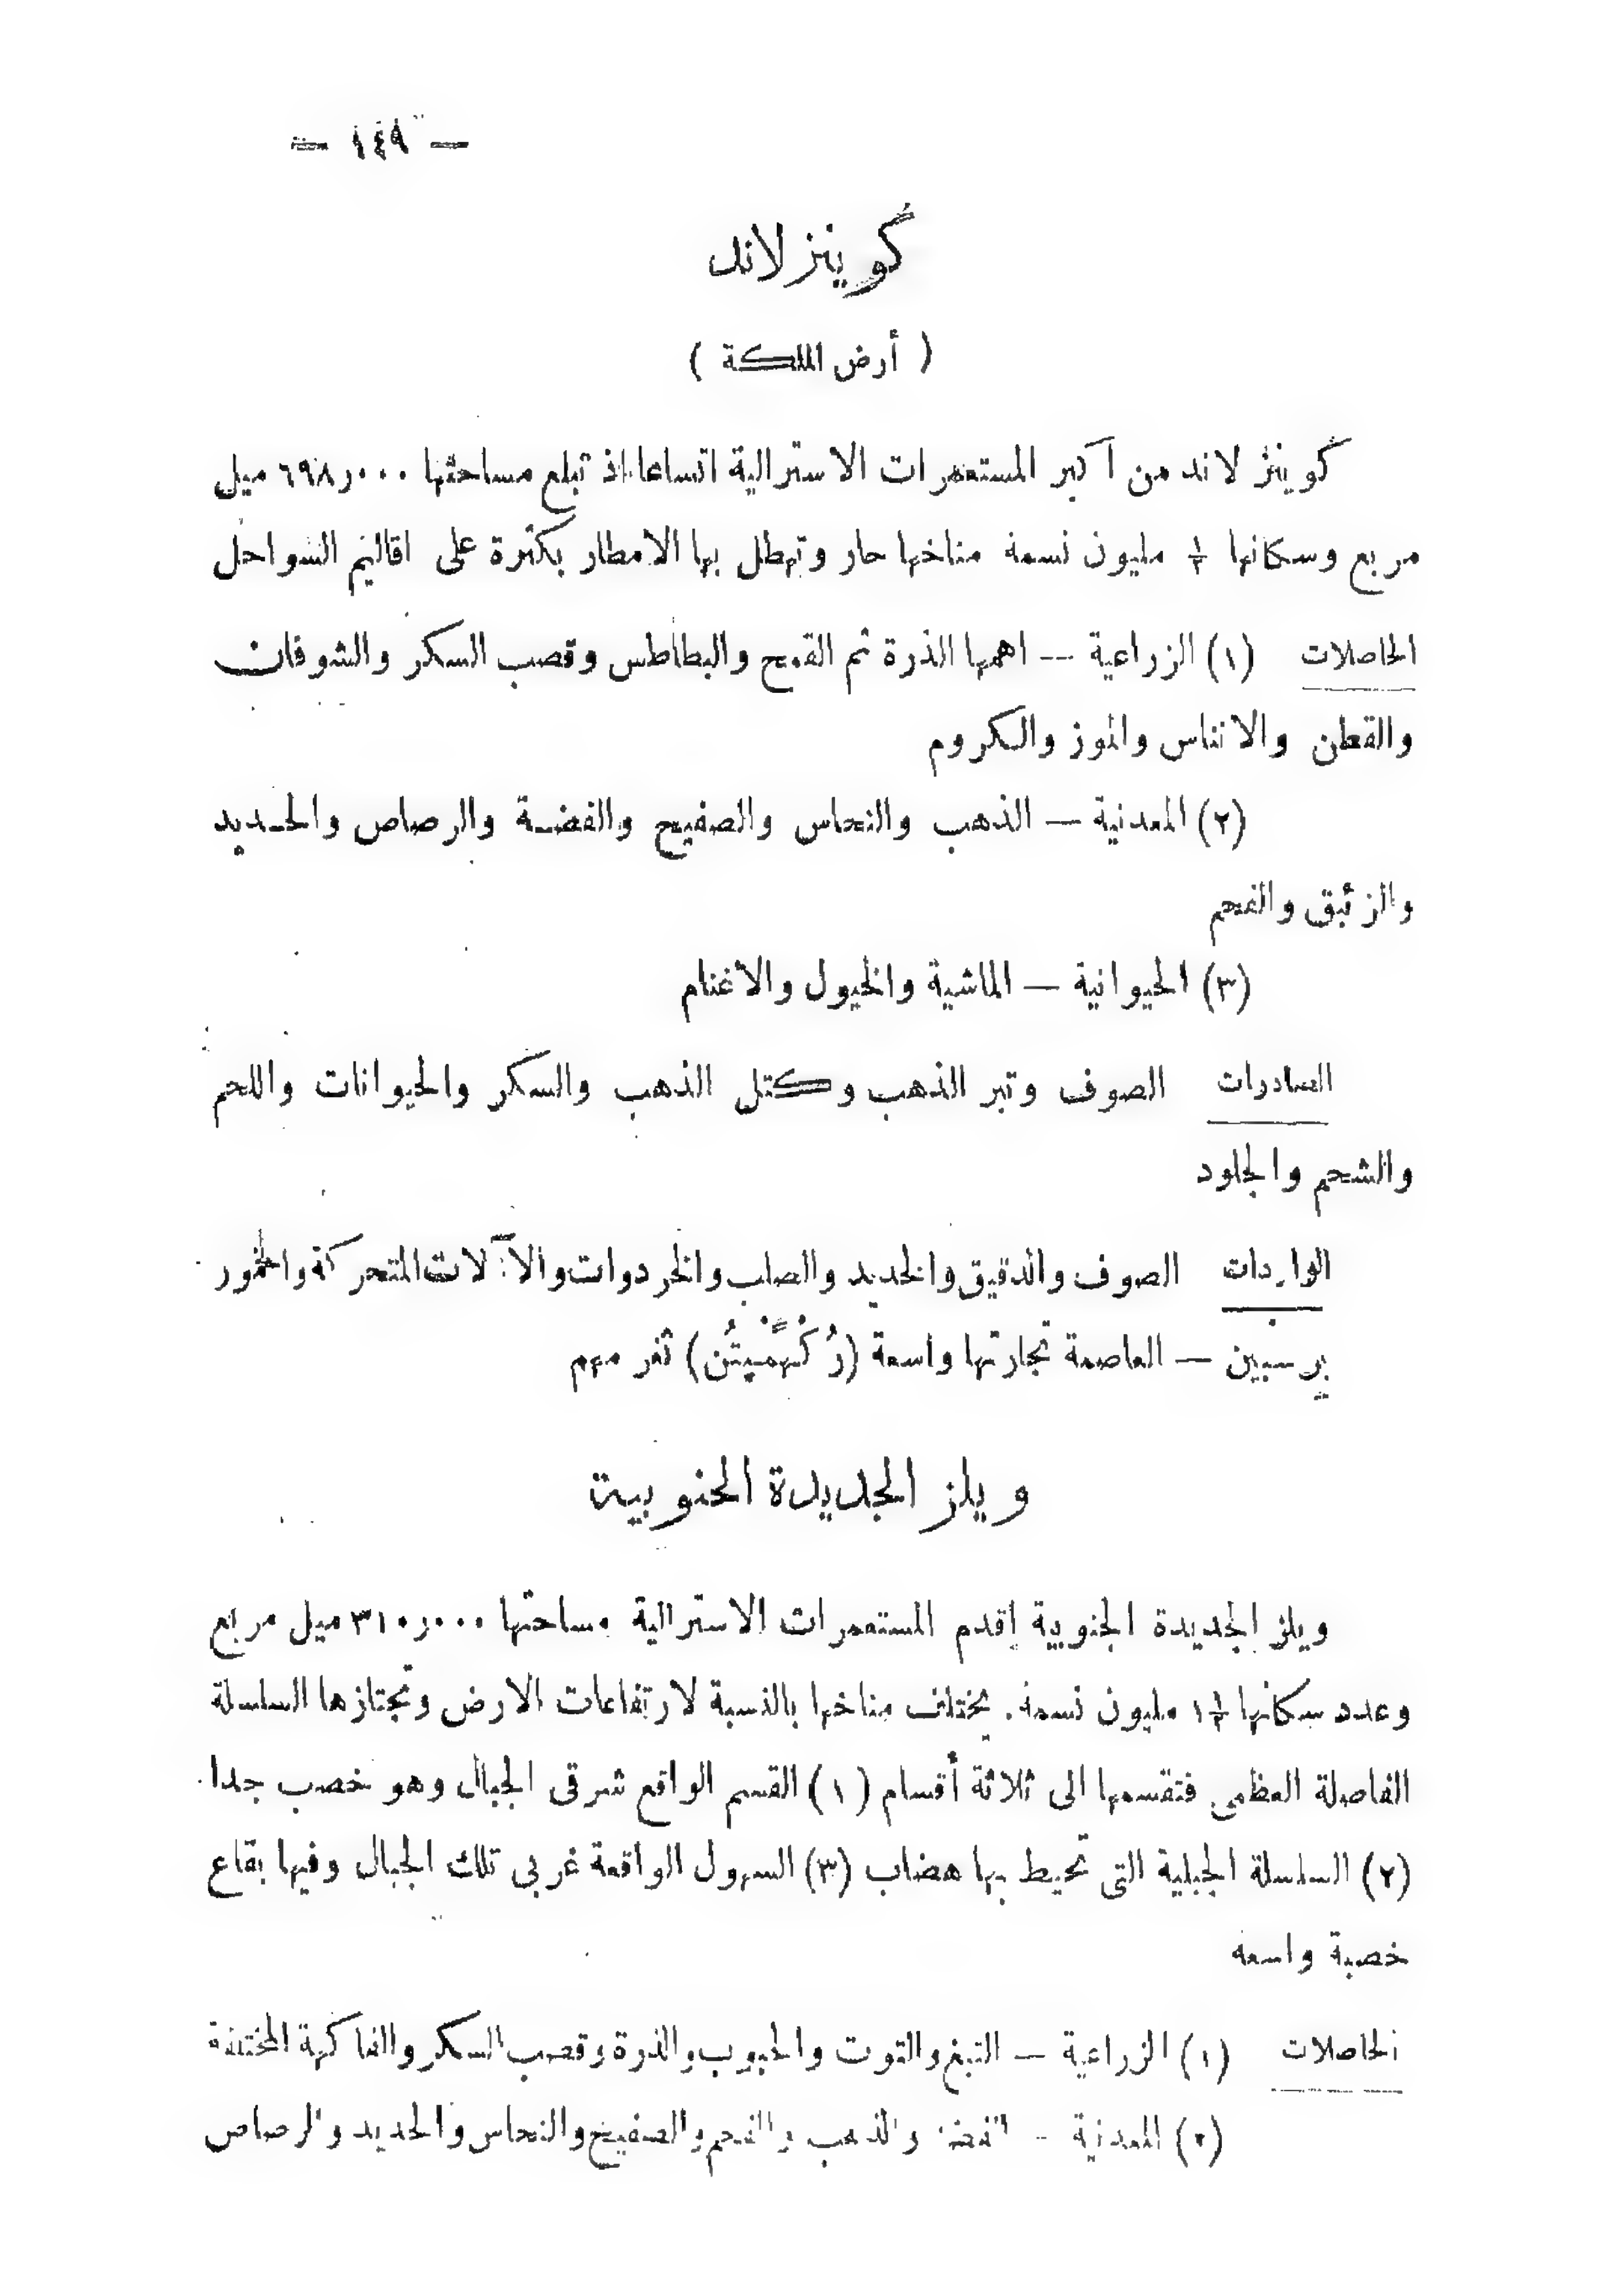 — ١٤٩ —
كوينزلاند
( أرض الملكة )
كوينز لاند من اكبر المستعمرات الاسترالية اتساعا اذ تبلغ مساحتها ٦٩٨٫٠٠٠ ميل
مربع وسكانها مليون نسمة مناخها حار وتهطل بها الامطار بكثرة على اقاليم السواحل
الحاصلات (١) الزراعية — اهمها الذرة ثم القمح والبطاطس وقصب السكر والشوفان
والقطن والاناناس والموز والكروم
(٢) المعدنية — الذهب والنحاس والصفيح والفضة والرصاص والحديد
والزئبق والفحم
(٣) الحيوانية — الماشية والخيول والأغنام
الصادرات الصوف وتبر الذهب وكتل الذهب والسكر والحيوانات واللحم
والشحم والجلود
الواردات الصوف والدقيق والحديد والصلب والخردوات والآلات المتحركة والخمور
برسبين — العاصمة تجارتها واسعة ثغر مهم
ويلز الجديدة الجنوبية
ويلز الجديدة الجنوبية اقدم المستعمرات الاسترالية مساحتها ٣١٠٫٠٠٠ ميل مربع
وعدد سكانها مليون نسمة. يختلف مناخها بالنسبة لارتفاعات الارض وتجتازها السلسلة
الفاصلة العظمى فتقسمها الى ثلاثة أقسام (١) القسم الواقع شرقى الجبال وهو خصب جدا
(٢) السلسلة الجبلية التى تحيط بها هضاب (٣) السهول الواقعة غربى تلك الجبال وفيها بقاع
خصبة واسعة
الحاصلات (١) الزراعية — التبغ والتوت والحبوب والذرة وقصب السكر والفاكهة المختلفة
(٢) المعدنية — الفضة والذهب والفحم والصفيح والنحاس والحديد والرصاص